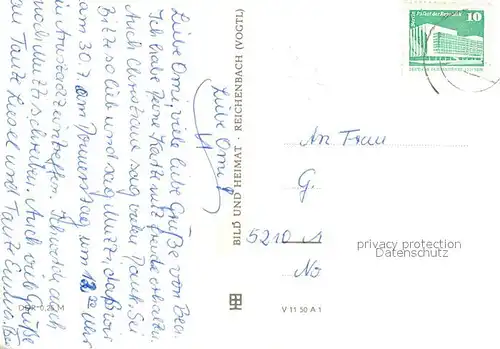 Liebe Omi, viele liebe Grüße von Bea.
Ich habe Deine Karte mit Freude erhalten.
Auch Christiane sagt vielen Dank. Sei
Bitte so lieb und sag Mutti, daß wir
am 30.7. am Donnerstag um 12⁰⁰ Uhr
in Arnstadt eintreffen. Ich werde auch
noch Mutti schreiben. Auch viele Grüße
an Tante Liesel und Tante
Liebe Omi!
BILD UND HEIMAT · REICHENBACH (VOGTL)
DDR 0,20 M
V 11 50 A 1
Berlin, Palast der Republik
10
An Frau
G.
5210 A
No
privacy protection
Datenschutz